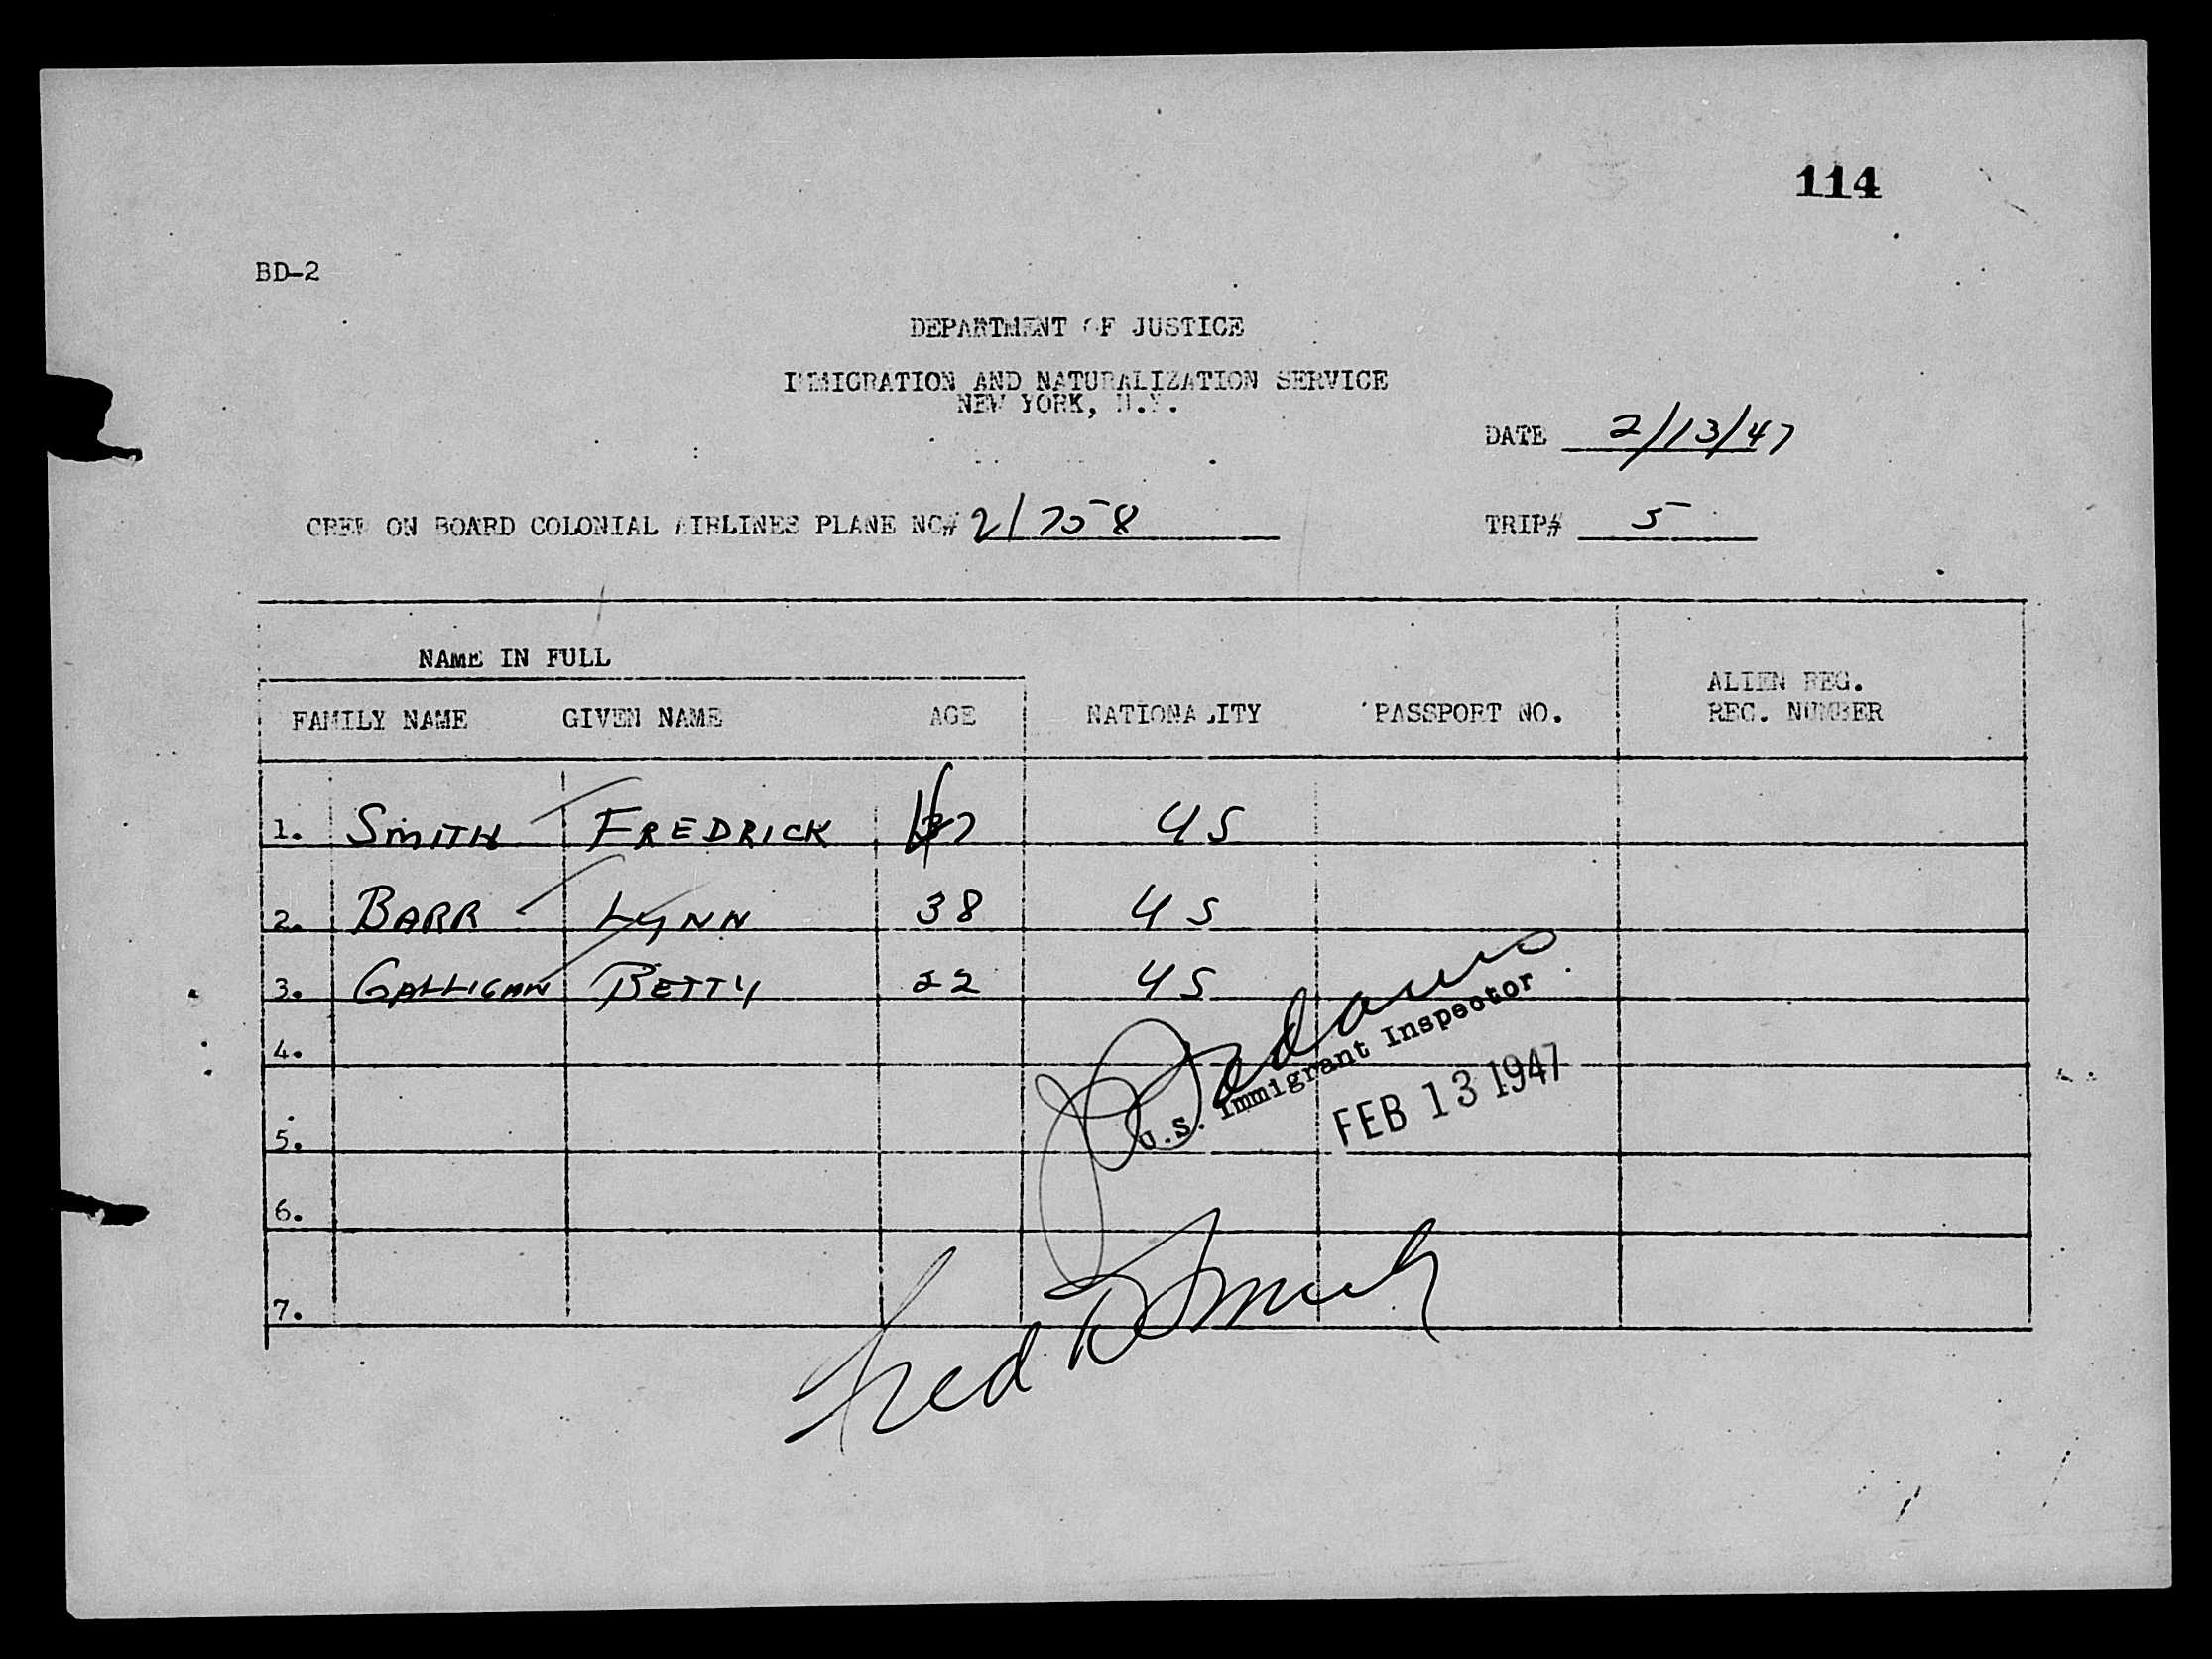 114
BD-2
DEPARTMENT OF JUSTICE
IMMIGRATION AND NATURALIZATION SERVICE
NEW YORK, N.Y.
DATE 2/13/47
CREW ON BOARD COLONIAL AIRLINES PLANE NO# 21758
TRIP# 5
NAME IN FULL
FAMILY NAME GIVEN NAME AGE NATIONALITY PASSPORT NO. ALIEN REG. REC. NUMBER
1. SMITH FREDRICK 37 US
2. BARR LYNN 38 US
3. GALLIGAN BETTY 22 US
4.
U.S. Immigrant Inspector
FEB 13 1947
5.
6.
7.
Fred Smith